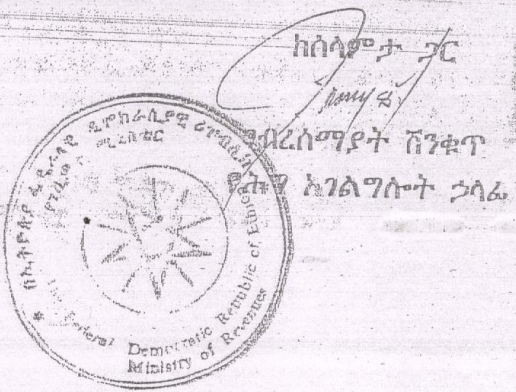 ከሰላምታ ጋር
ብረሰማያት ሽንቁጥ
የሕግ አገልግሎት ኃላፊ
በኢትዮጵያ ፌዴራላዊ ዲሞክራሲያዊ ሪፐብሊክ
የገቢዎች ሚኒስቴር
The Federal Democratic Republic of Ethiopia
Ministry of Revenues